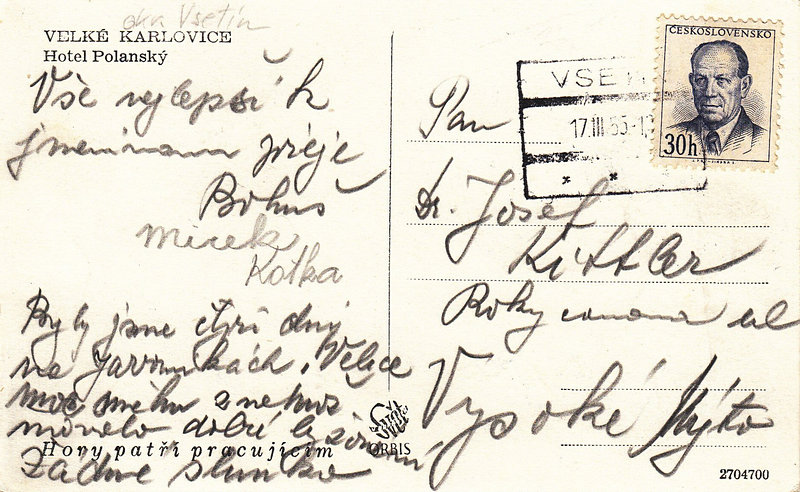 okr Vsetín
VELKÉ KARLOVICE
Hotel Polanský
Vše nejlepší k
jmeninám přeje
Bohuš
Mirek
Kotka
Byly jsme čtyři dny
na Javorníkách. Velice
moc sněhu
dobré
žádné slunko
Hory patří pracujícím
ORBIS
ČESKOSLOVENSKO
30h
VSE
17.III.55-1
Pan
Dr. Josef
Kittler
Rokycanova ul
Vysoké Mýto
2704700